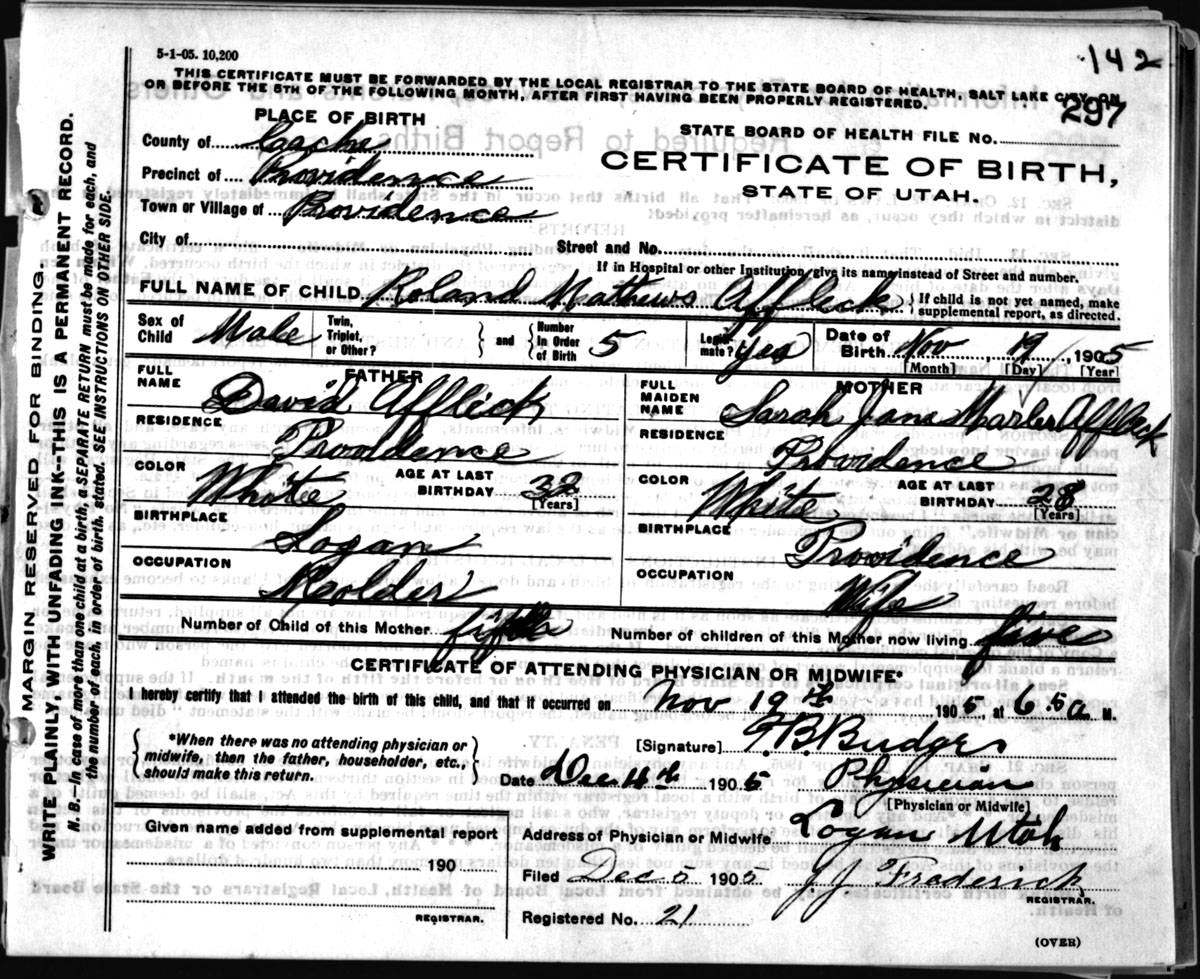 5-1-05. 10,200
142
THIS CERTIFICATE MUST BE FORWARDED BY THE LOCAL REGISTRAR TO THE STATE BOARD OF HEALTH, SALT LAKE CITY, ON
OR BEFORE THE 5TH OF THE FOLLOWING MONTH, AFTER FIRST HAVING BEEN PROPERLY REGISTERED.
297
PLACE OF BIRTH
STATE BOARD OF HEALTH FILE No.
County of Caache
CERTIFICATE OF BIRTH,
Precinct of Providence
STATE OF UTAH.
Town or Village of Providence
City of
Street and No.
If in Hospital or other Institution, give its name instead of Street and number.
FULL NAME OF CHILD Roland Mathews Affleck { If child is not yet named, make
supplemental report, as directed.
Sex of Child Male
Twin, Triplet, or Other?
and Number in Order of Birth 5
Legitimate? Yes
Date of Birth Nov, 19, 1905
[Month] [Day] [Year]
FATHER
FULL NAME David Affleck
RESIDENCE Providence
COLOR White
AGE AT LAST BIRTHDAY 32
[Years]
BIRTHPLACE Logan
OCCUPATION Molder
MOTHER
FULL MAIDEN NAME Sarah Jane Marler Affleck
RESIDENCE Providence
COLOR White
AGE AT LAST BIRTHDAY 28
[Years]
BIRTHPLACE Providence
OCCUPATION Wife
Number of Child of this Mother fifth
Number of children of this Mother now living five
CERTIFICATE OF ATTENDING PHYSICIAN OR MIDWIFE*
I hereby certify that I attended the birth of this child, and that it occurred on Nov 19th 1905 at 6.50 a M.
*When there was no attending physician or
midwife, then the father, householder, etc.,
should make this return.
[Signature]
Date Dec 4th 1905
Physician
[Physician or Midwife]
Given name added from supplemental report
190
REGISTRAR.
Address of Physician or Midwife Logan Utah
Filed Dec 5 1905 J J Frederick
REGISTRAR.
Registered No. 21
(OVER)
MARGIN RESERVED FOR BINDING
WRITE PLAINLY WITH UNFADING INK--THIS IS A PERMANENT RECORD.
N. B.--In case of more than one child at a birth, a SEPARATE RETURN must be made for each, and
the number of each, in order of birth, stated. SEE INSTRUCTIONS ON OTHER SIDE.